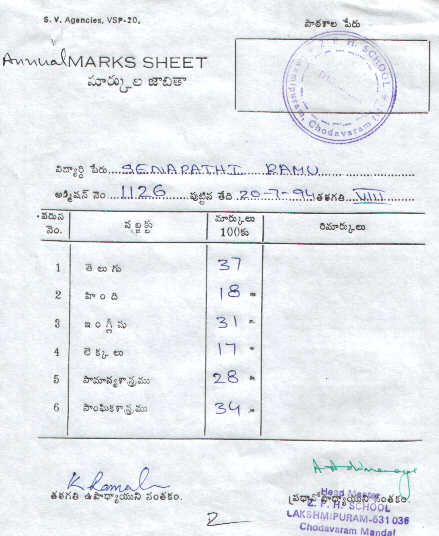 S. V. Agencies, VSP-20.
పాఠశాల పేరు
Annual MARKS SHEET
మార్కుల జాబితా
Z. P. H. SCHOOL
Chodavaram
విద్యార్థి పేరు SENAPATHI RAMU
అడ్మిషన్ నెం 1126 పుట్టిన తేది 20-7-94 తరగతి VIII
వరుస నెం. సబ్జెక్టు మార్కులు 100కు రిమార్కులు
1 తెలుగు 37
2 హింది 18
3 ఇంగ్లీషు 31
4 లెక్కలు 17
5 సామాన్యశాస్త్రము 28
6 సాంఘికశాస్త్రము 34
తరగతి ఉపాధ్యాయుని సంతకం.
ప్రధానోపాధ్యాయుని సంతకం.
Head Master
Z. P. H. SCHOOL
LAKSHMIPURAM-531 036
Chodavaram Mandal